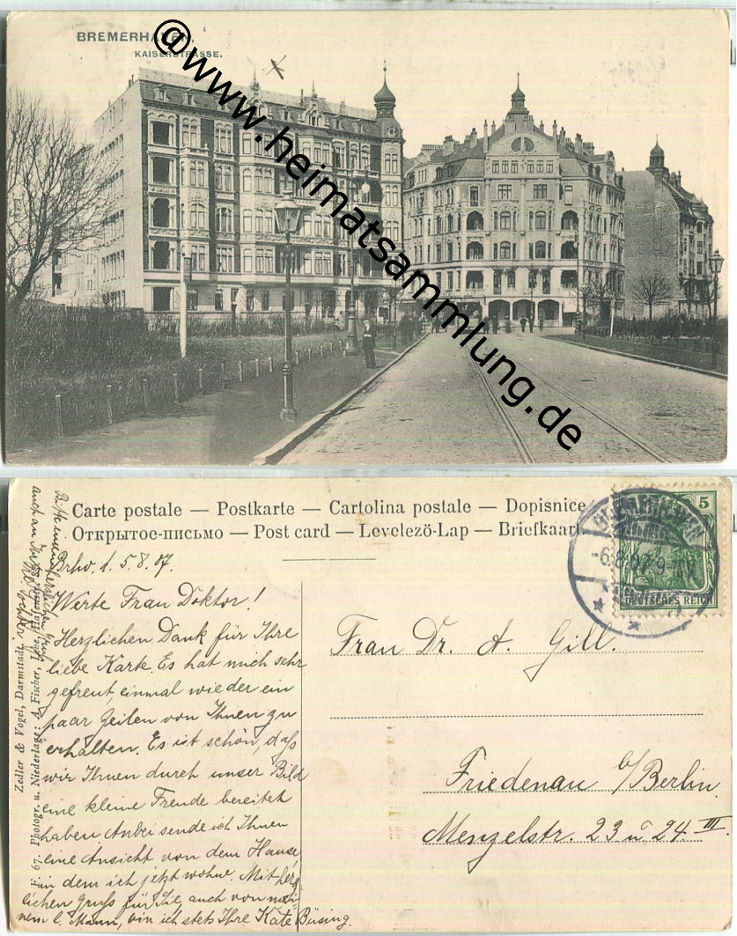 BREMERHAVEN,
KAISERSTRASSE.
@www.heimatsammlung.de
Carte postale — Postkarte — Cartolina postale — Dopisnice
Открытое-письмо — Post card — Levelező-Lap — Briefkaart
5
DEUTSCHES REICH
BREMERHAVEN
Brhv. d. 5.8.07.
Werte Frau Doktor!
Herzlichen Dank für Ihre
liebe Karte. Es hat mich sehr
gefreut, einmal wieder ein
paar Zeilen von Ihnen zu
erhalten. Es ist schön, daß
wir Ihnen durch unser Bild
eine kleine Freude bereitet
haben. Anbei sende ich Ihnen
eine Ansicht von dem Hause,
in dem ich jetzt wohne. Mit herz
lichen Gruß für Sie, auch von mei-
nem l. Mann, bin ich stets Ihre Käte Büsing.
Bitte einen herzlichen Gruß
auch an
Frau Dr. A. Gill.
Friedenau b/Berlin
Menzelstr. 23 u 24 III.
Zedler & Vogel, Darmstadt.
67. Photogr. u. Niederlage: A. Fischer, Lehe, Hafenstr.